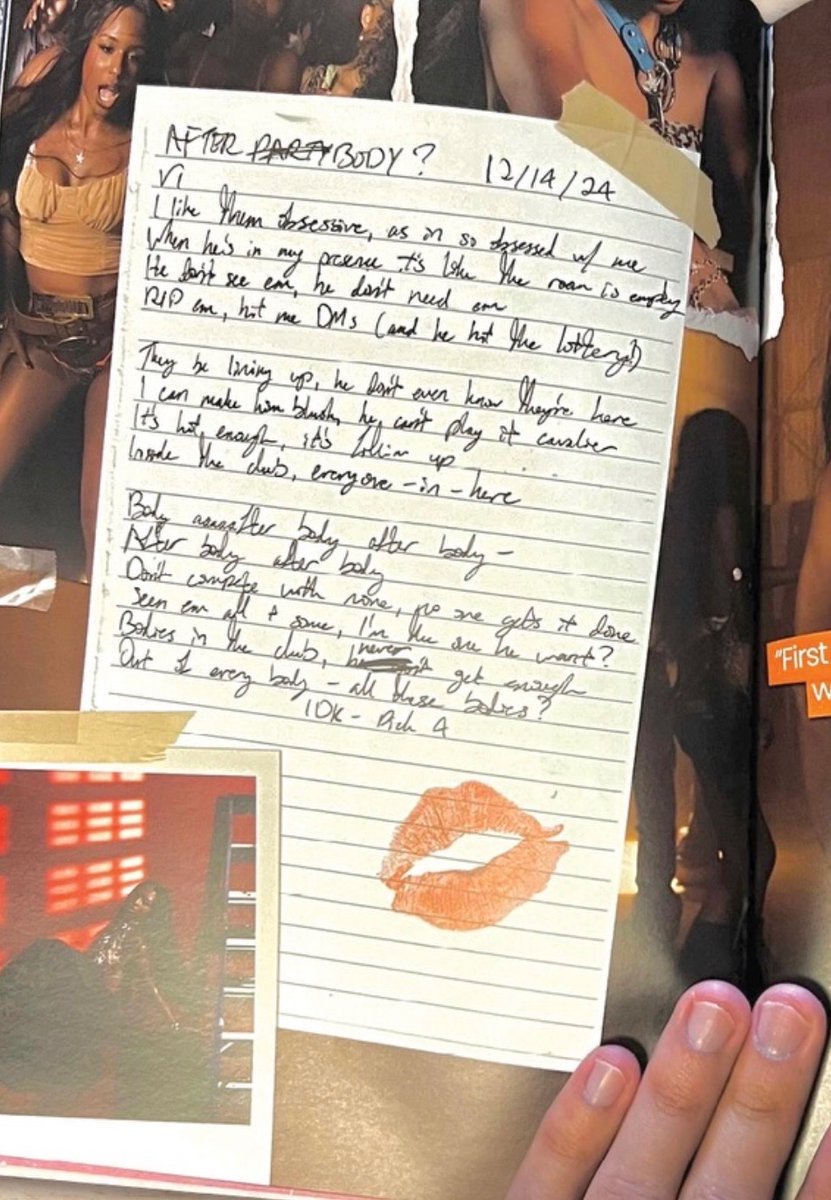 AFTER PARTY BODY? 12/14/24
V1
I like them obsessive, as in so obsessed w/ me
When he's in my presence it's like the room is empty
He don't see em, he don't need em
RIP em, hit me DMs (and he hit the lottery!)
They be lining up, he don't even know they're here
I can make him blush, he can't play it cavalier
It's hot enough, it's fillin up
Inside the club, everyone-in-here
Body aaaaafter body after body-
After body after body
Don't compete with none, no one gets it done
Seen em all + some, I'm the one he want?
Bodies in the club, never get enough
Out of every body - all these bodies?
10K - Pick A
"First
w